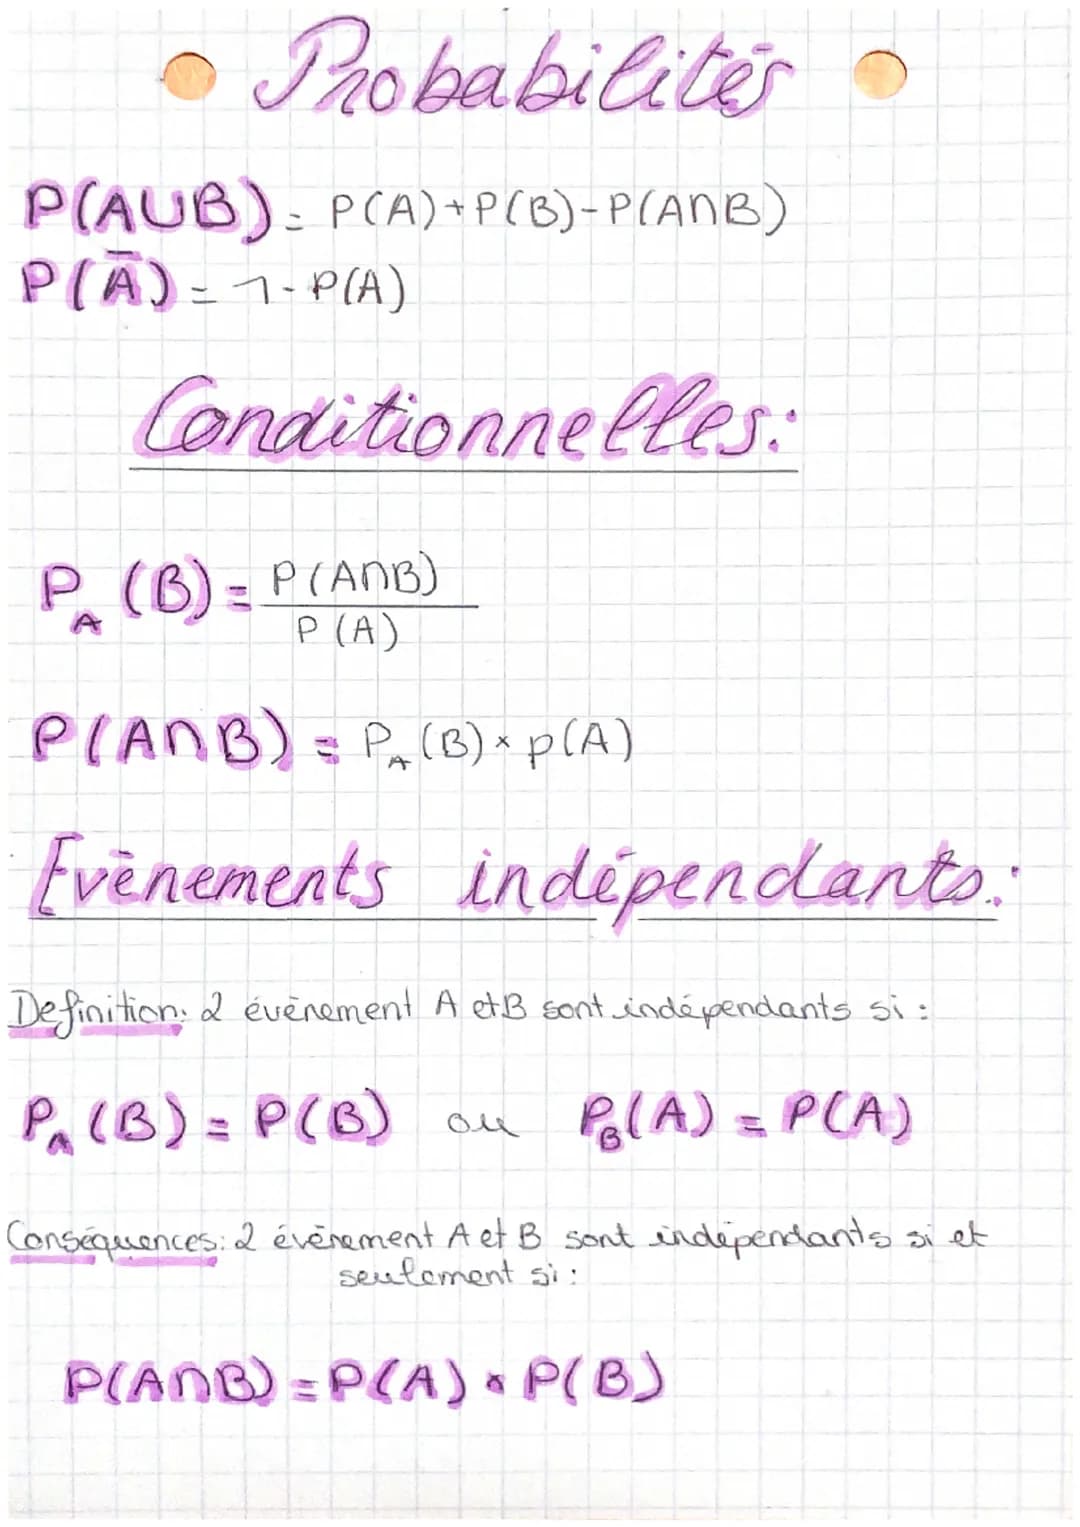 Probabilités
P(A∪B) = P(A)+P(B)-P(A∩B)
P(Ā) = 1-P(A)
Conditionnelles:
P_A(B) = P(A∩B)
P(A)
P(A∩B) = P_A(B) × p(A)
Evènements indépendants:
Definition: 2 événement A et B sont indépendants si :
P_A(B) = P(B) ou P_B(A) = P(A)
Conséquences: 2 événement A et B sont indépendants si et
seulement si :
P(A∩B) = P(A) × P(B)